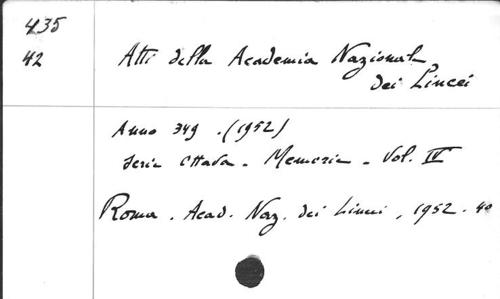 435
42
Atti della Academia Nazionale
dei Lincei
Anno 349 . (1952)
Serie Ottava - Memorie - Vol. IV
Roma . Acad. Naz. dei Lincei , 1952 . 4º